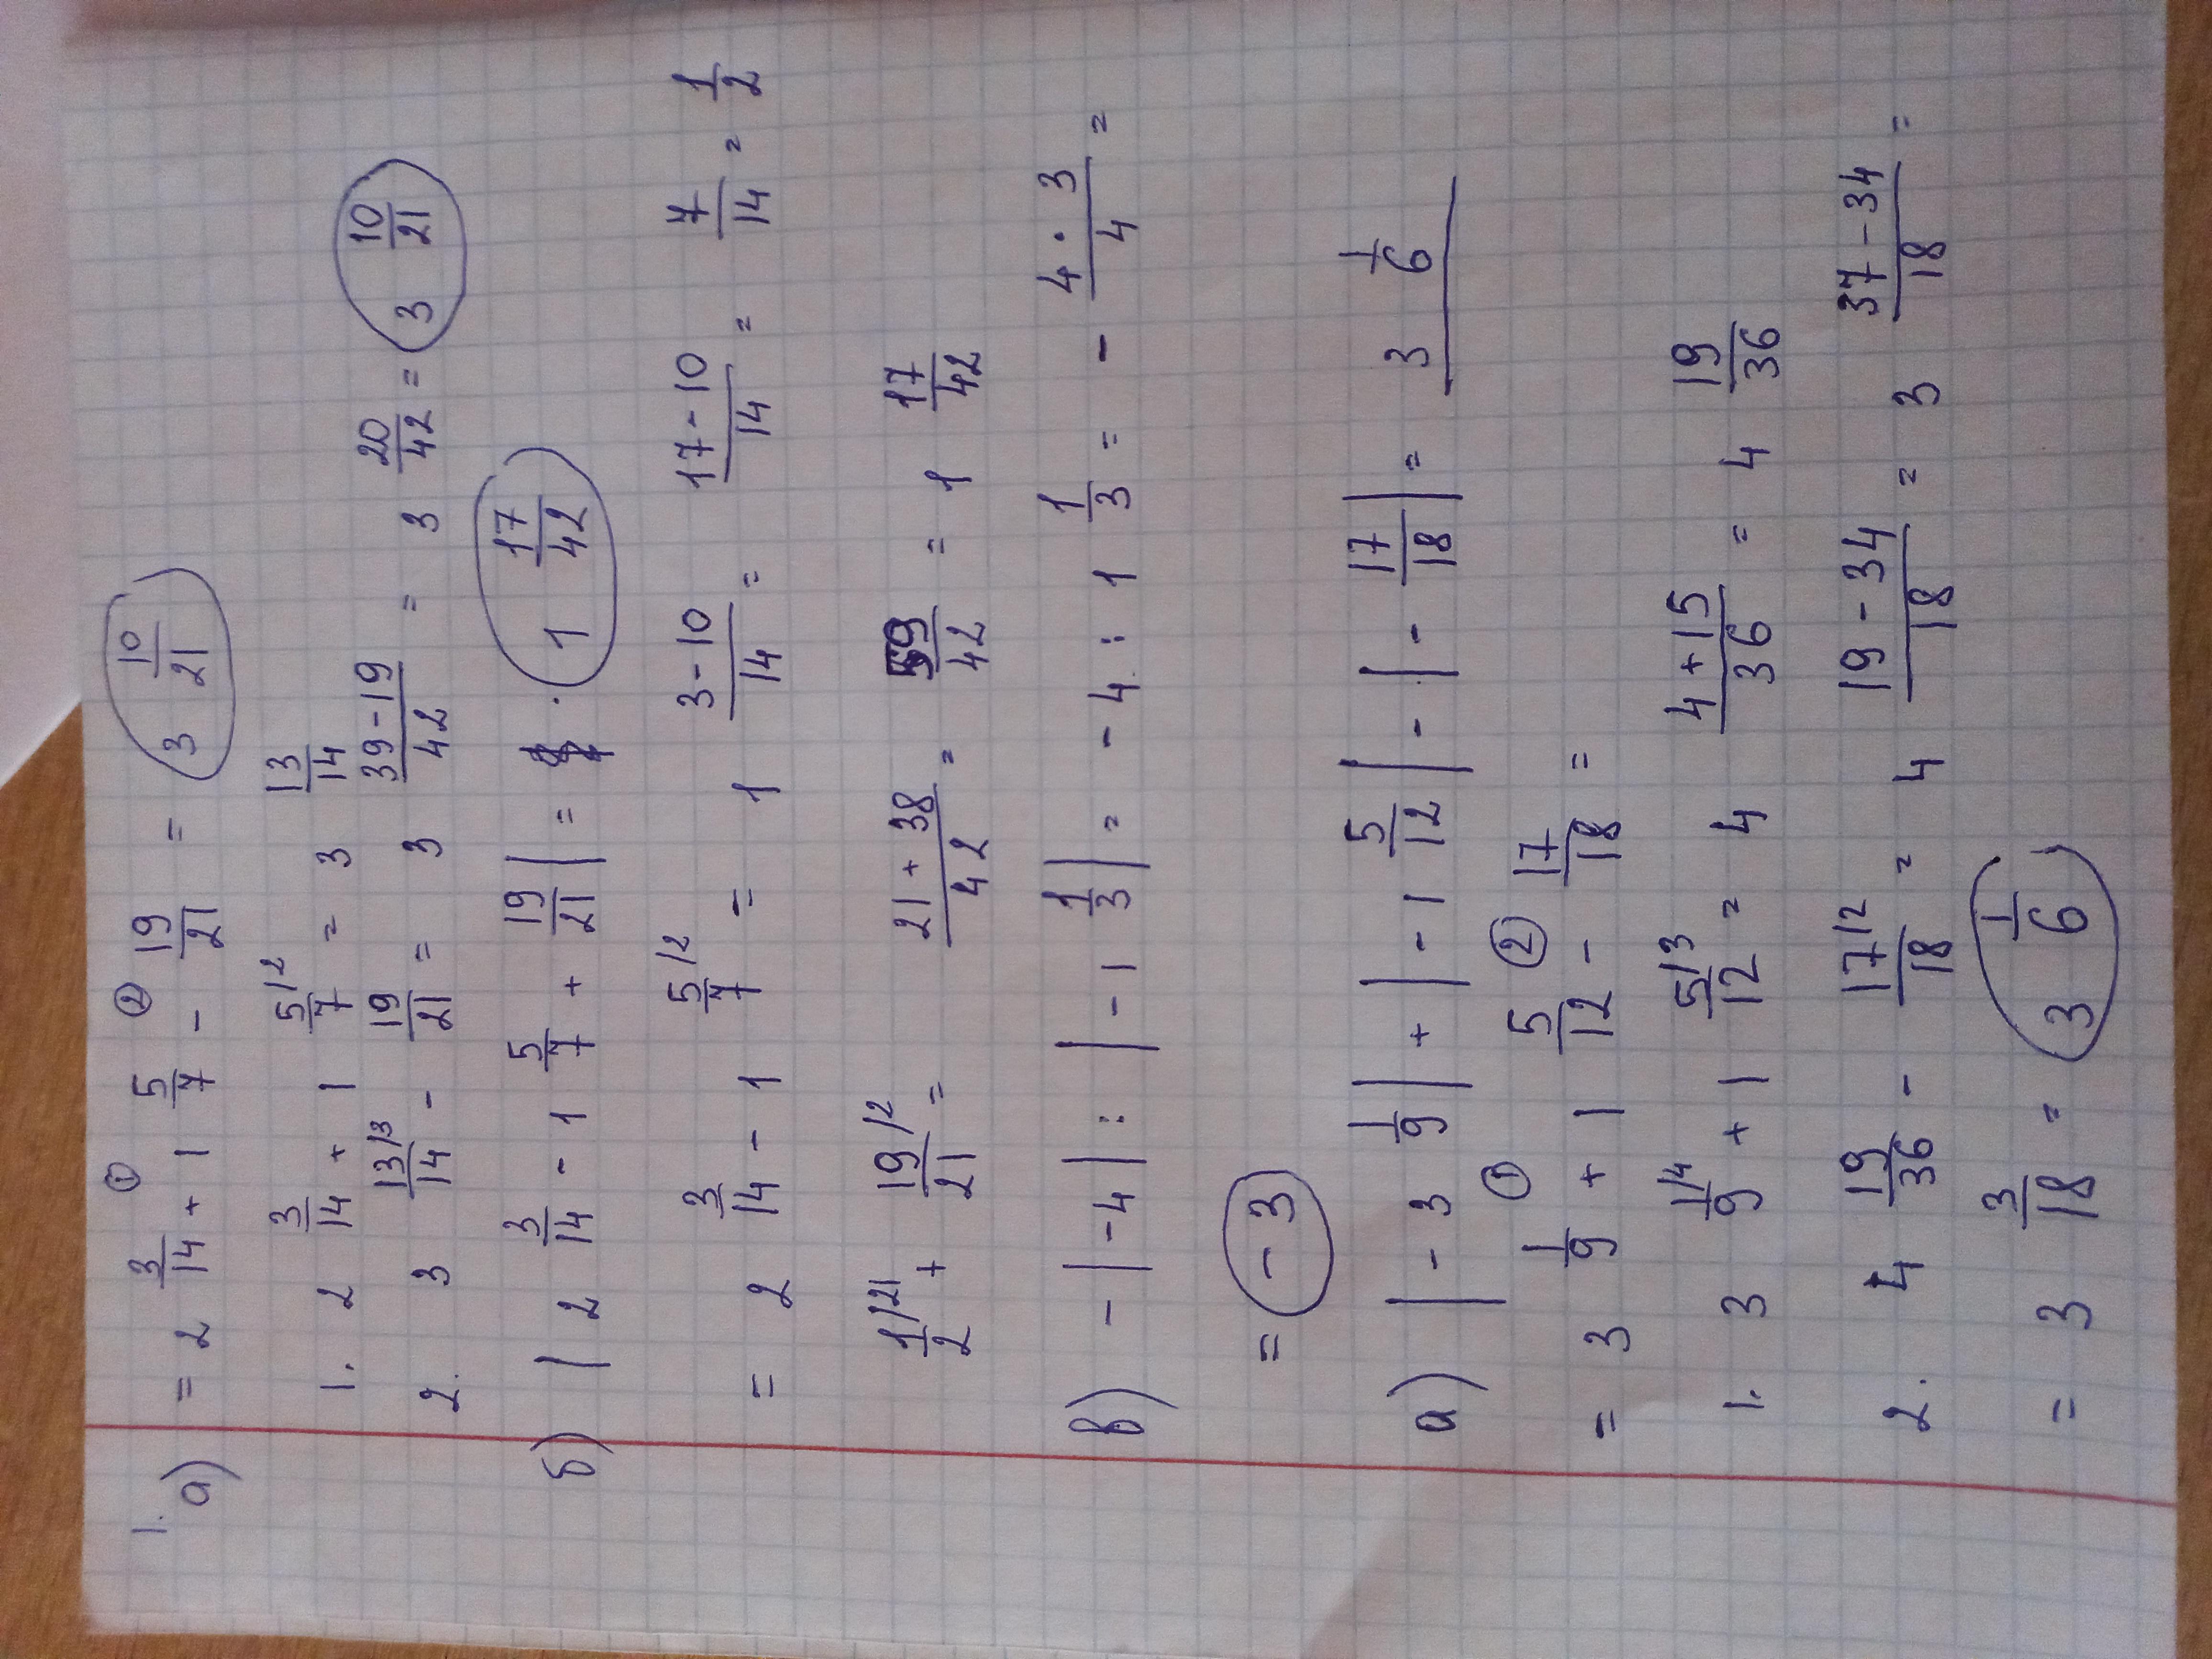 1.
а) = 2 3/14 + 1 5/7 - 19/21 = 3 10/21
① ②
1. 2 3/14 + 1 5/7 /2 = 3 13/14
2. 3 13/14 /3 - 19/21 = 3 39-19/42 = 3 20/42 = 3 10/21
б) | 2 3/14 - 1 5/7 + 19/21 | = 1 17/42
= 2 3/14 - 1 5/7 /2 = 1 3-10/14 = 17-10/14 = 7/14 = 1/2
1/2 /21 + 19/21 /2 = 21+38/42 = 59/42 = 1 17/42
в) - | -4 | : | -1 1/3 | = -4 : 1 1/3 = - 4·3/4 =
= -3
а) | -3 1/9 | + | -1 5/12 | - | - 17/18 | = 3 1/6
① ②
= 3 1/9 + 1 5/12 - 17/18 =
1. 3 1/9 /4 + 1 5/12 /3 = 4 4+15/36 = 4 19/36
2. 4 19/36 - 17/18 /2 = 4 19-34/18 = 3 37-34/18 =
= 3 3/18 = 3 1/6